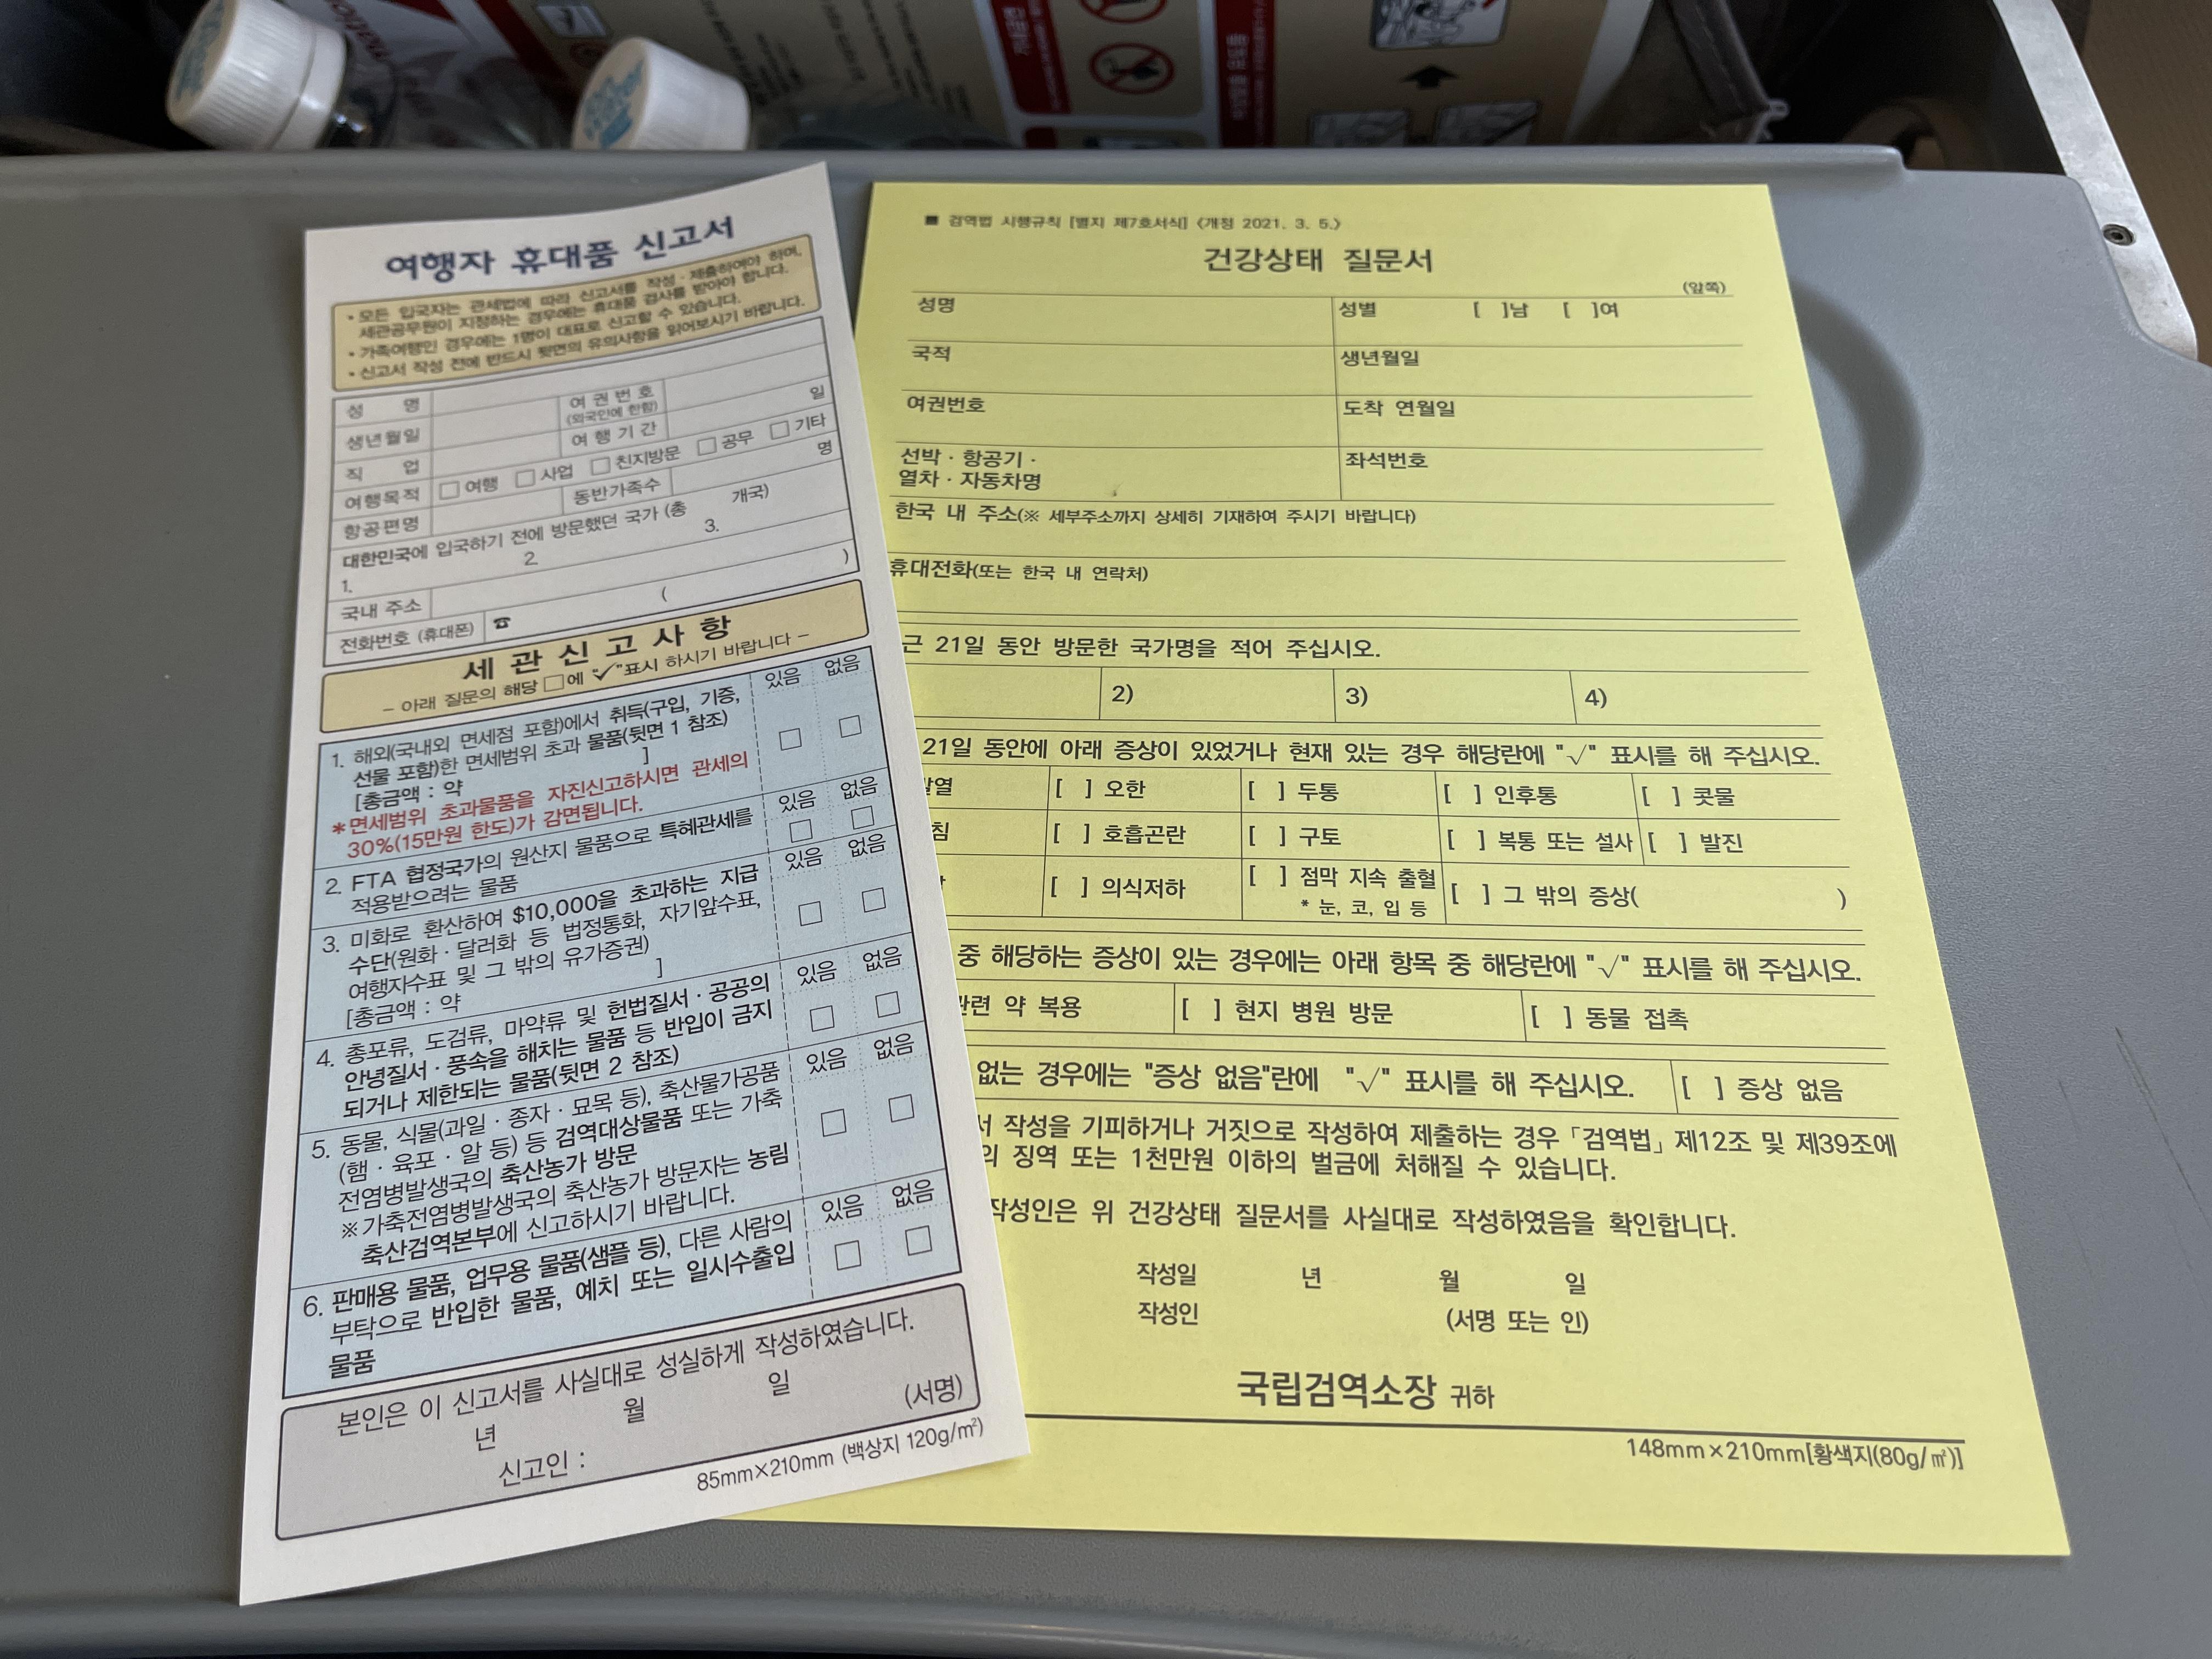 여행자 휴대품 신고서
• 모든 입국자는 관세법에 따라 신고서를 작성 · 제출하여야 하며,
세관공무원이 지정하는 경우에는 휴대품 검사를 받아야 합니다.
• 가족여행인 경우에는 1명이 대표로 신고할 수 있습니다.
• 신고서 작성 전에 반드시 뒷면의 유의사항을 읽어보시기 바랍니다.
성 명
여 권 번 호
(외국인에 한함)
생년월일
여 행 기 간
일
직 업
여행목적 □ 여행 □ 사업 □ 친지방문 □ 공무 □ 기타
항공편명
동반가족수
명
대한민국에 입국하기 전에 방문했던 국가 (총 개국)
1. 2. 3.
국내 주소
전화번호 (휴대폰) ☎ ( )
세 관 신 고 사 항
- 아래 질문의 해당 □에 "√"표시 하시기 바랍니다 -
있음 없음
1. 해외(국내외 면세점 포함)에서 취득(구입, 기증,
선물 포함)한 면세범위 초과 물품(뒷면 1 참조)
[총금액 : 약 ]
*면세범위 초과물품을 자진신고하시면 관세의
30%(15만원 한도)가 감면됩니다.
있음 없음
2. FTA 협정국가의 원산지 물품으로 특혜관세를
적용받으려는 물품
있음 없음
3. 미화로 환산하여 $10,000을 초과하는 지급
수단(원화 · 달러화 등 법정통화, 자기앞수표,
여행자수표 및 그 밖의 유가증권)
[총금액 : 약 ]
있음 없음
4. 총포류, 도검류, 마약류 및 헌법질서 · 공공의
안녕질서 · 풍속을 해치는 물품 등 반입이 금지
되거나 제한되는 물품(뒷면 2 참조)
있음 없음
5. 동물, 식물(과일 · 종자 · 묘목 등), 축산물가공품
(햄 · 육포 · 알 등) 등 검역대상물품 또는 가축
전염병발생국의 축산농가 방문
※가축전염병발생국의 축산농가 방문자는 농림
축산검역본부에 신고하시기 바랍니다.
있음 없음
6. 판매용 물품, 업무용 물품(샘플 등), 다른 사람의
부탁으로 반입한 물품, 예치 또는 일시수출입
물품
본인은 이 신고서를 사실대로 성실하게 작성하였습니다.
년 월 일
신고인 : (서명)
85mm×210mm (백상지 120g/㎡)
■ 검역법 시행규칙 [별지 제7호서식] <개정 2021. 3. 5.>
건강상태 질문서
(앞쪽)
성명
성별 [ ]남 [ ]여
국적
생년월일
여권번호
도착 연월일
선박 · 항공기 ·
열차 · 자동차명
좌석번호
한국 내 주소(※ 세부주소까지 상세히 기재하여 주시기 바랍니다)
휴대전화(또는 한국 내 연락처)
근 21일 동안 방문한 국가명을 적어 주십시오.
2) 3) 4)
21일 동안에 아래 증상이 있었거나 현재 있는 경우 해당란에 "√" 표시를 해 주십시오.
열 [ ] 오한 [ ] 두통 [ ] 인후통 [ ] 콧물
침 [ ] 호흡곤란 [ ] 구토 [ ] 복통 또는 설사 [ ] 발진
[ ] 의식저하 [ ] 점막 지속 출혈 [ ] 그 밖의 증상( )
* 눈, 코, 입 등
중 해당하는 증상이 있는 경우에는 아래 항목 중 해당란에 "√" 표시를 해 주십시오.
관련 약 복용 [ ] 현지 병원 방문 [ ] 동물 접촉
없는 경우에는 "증상 없음"란에 "√" 표시를 해 주십시오. [ ] 증상 없음
서 작성을 기피하거나 거짓으로 작성하여 제출하는 경우 「검역법」 제12조 및 제39조에
의 징역 또는 1천만원 이하의 벌금에 처해질 수 있습니다.
작성인은 위 건강상태 질문서를 사실대로 작성하였음을 확인합니다.
작성일 년 월 일
작성인 (서명 또는 인)
국립검역소장 귀하
148mm×210mm[황색지(80g/㎡)]